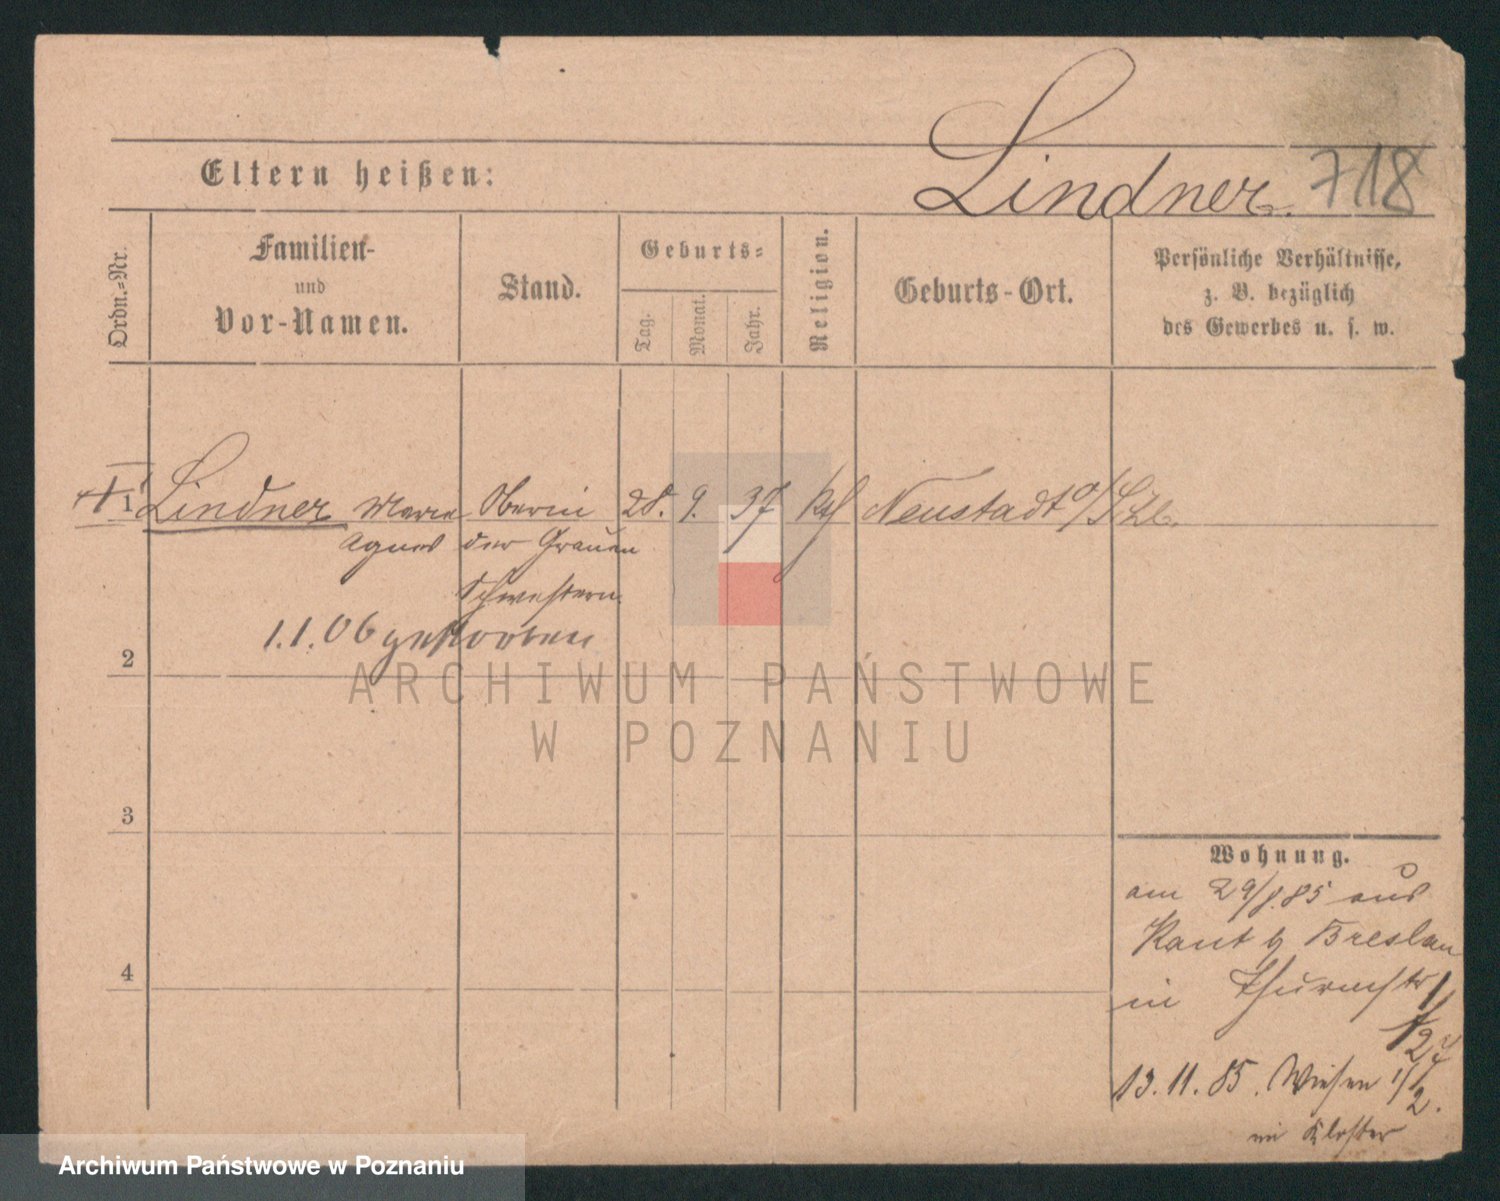 Lindner. 718
Eltern heißen:
Ordn.-Nr.
Familien-
und
Vor-Namen.
Stand.
Geburts-
Tag.
Monat.
Jahr.
Religion.
Geburts-Ort.
Persönliche Verhältnisse,
z. B. bezüglich
des Gewerbes u. s. w.
1 Lindner Marie Oberin 28. 9. 37 kth Neustadt o/Schl.
Agnes der Grauen
Schwestern.
1.1.06 gestorben
2
3
4
Wohnung.
am 29/8.85 aus
Kant b Breslau
in Thurmstr
13.11.85. Wiesen 1/2.
im Kloster
ARCHIWUM PAŃSTWOWE
W POZNANIU
Archiwum Państwowe w Poznaniu